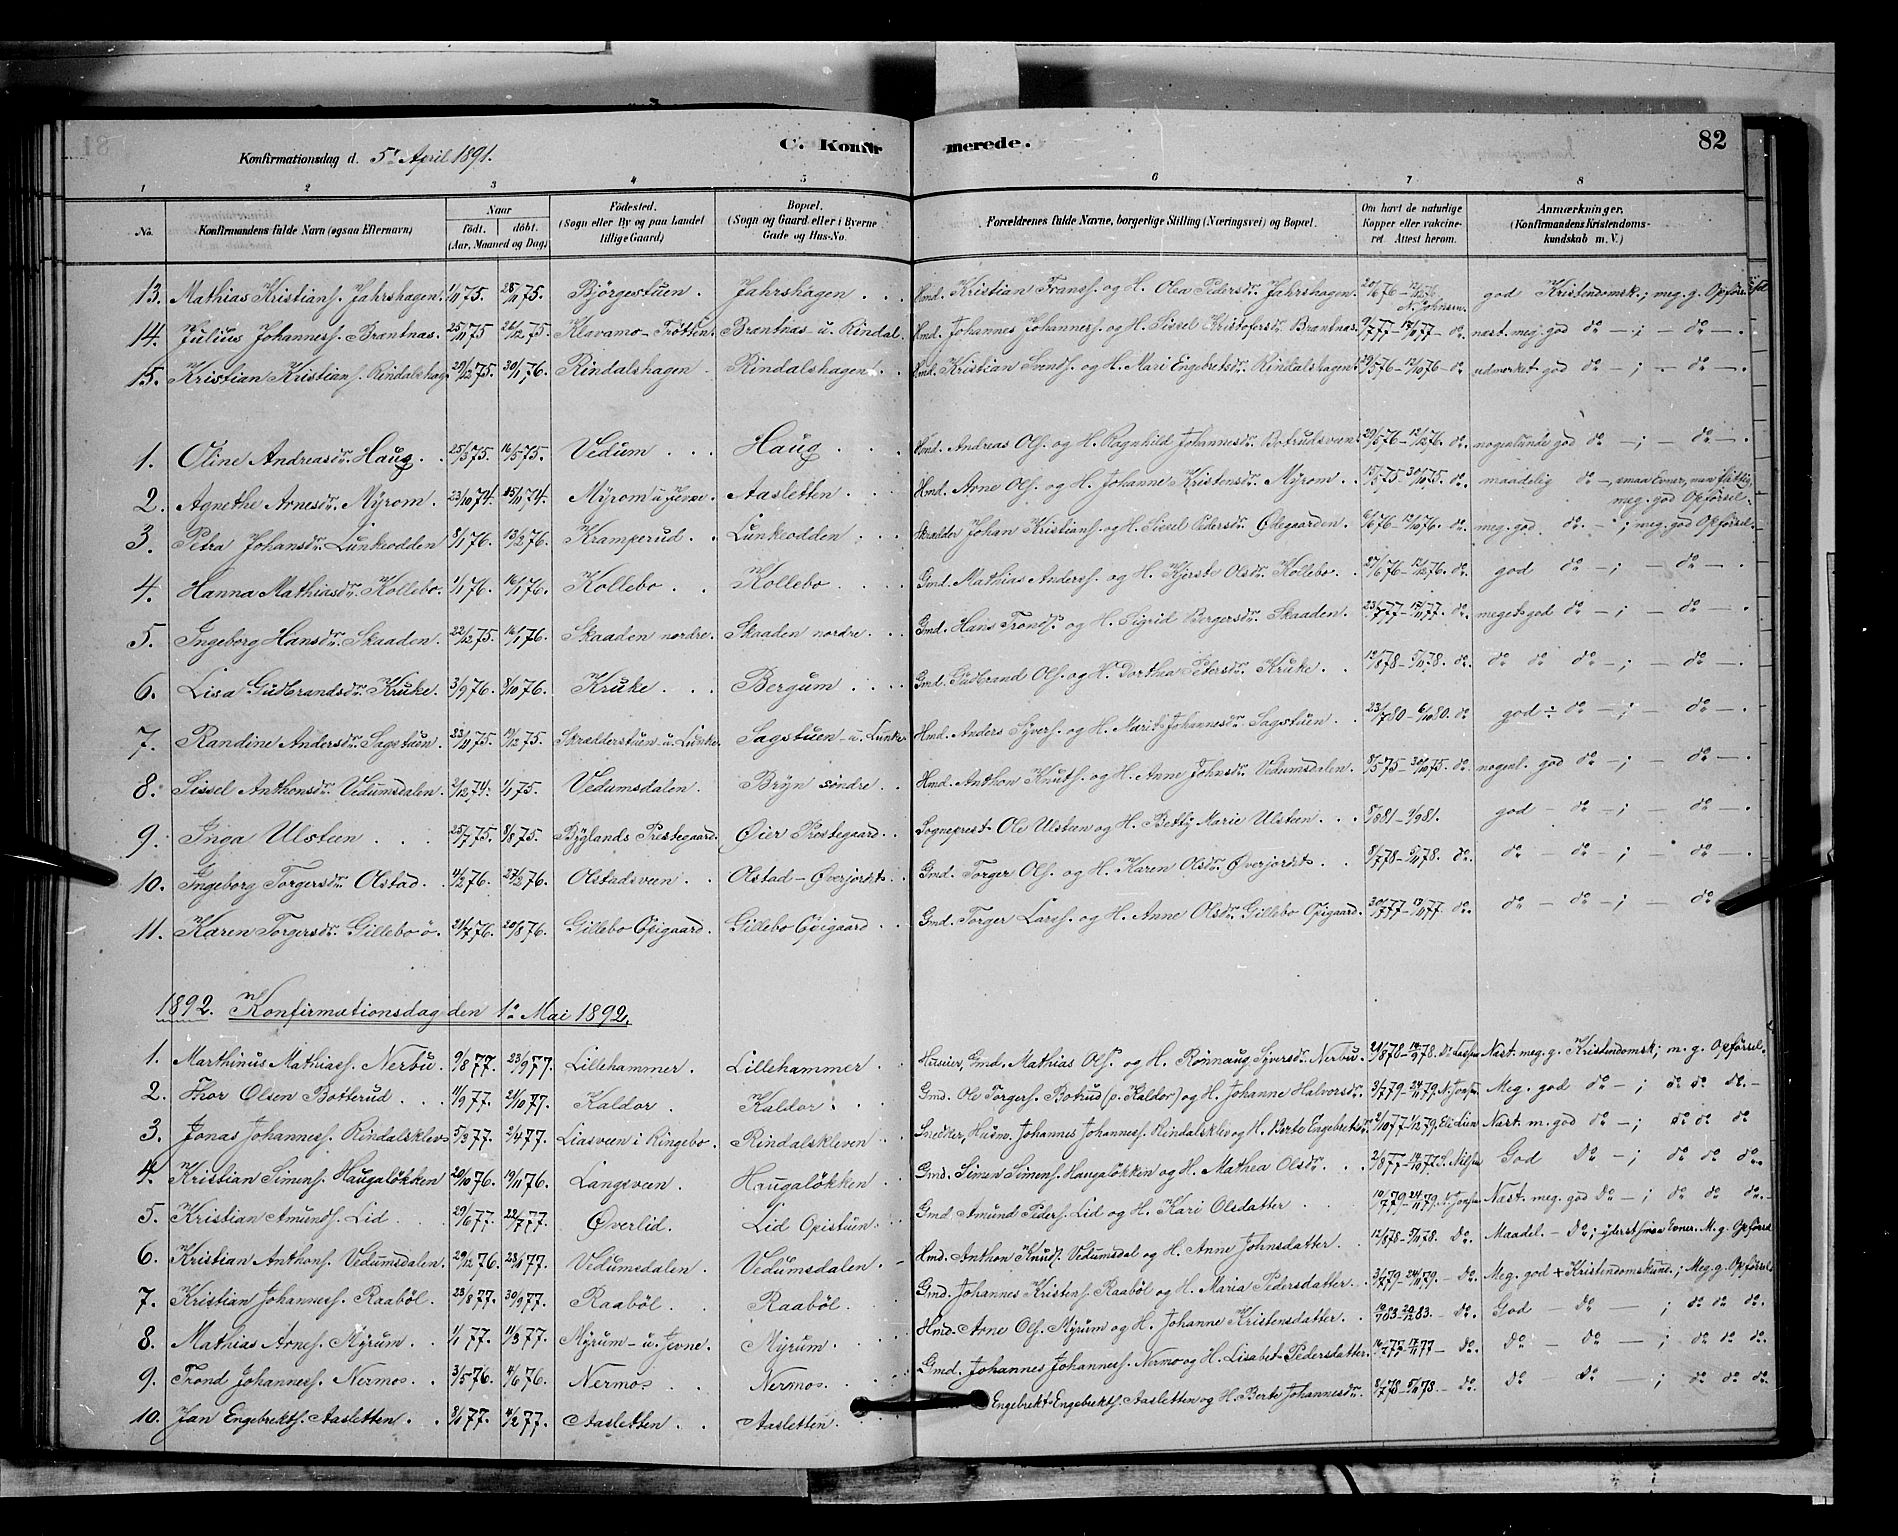 C. Konfirmerede.
82
Konfirmationsdag d. 5te April 1891.
1 2 3 4 5 6 7 8
No. Konfirmandens fulde Navn (ogsaa Efternavn) Naar født. døbt. (Aar, Maaned og Dag) Fødested. (Sogn eller By og paa Landet tillige Gaard) Bopæl. (Sogn og Gaard eller i Byerne Gade og Hus-No. Forældrenes fulde Navne, borgerlige Stilling (Næringsvei) og Bopæl. Om havt de naturlige Kopper eller vakcineret. Attest herom. Anmærkninger. (Konfirmandens Kristendomskundskab m. V.)
13. Mathias Kristians. Jahrshagen. 1/11 75. 28/11 75. Björgestuen. Jahrshagen . . Hmd. Kristian Frans. og H. Olea Pedersdr. Jahrshagen. god Kristendomsk.; meg. g. Opførsel
14. Julius Johannes. Brantnæs. 25/11 75 26/12 75. Klavamo-Trötten. Brantnæs u. Rindal. Hmd. Johannes Johannes. og H. Sissel Kristofersdr. Brantnæs. 9/7 77 - 17/11 77 - do. næst. meg. god do - ; - do - .
15. Kristian Kristians. Rindalshag. 29/12 75. 30/1 76. Rindalshagen. Rindalshagen. . Hmd. Kristian Svends. og H. Mari Engebretsdr. Rindalshagen. 29/5 76 - 12/10 76 - do udmerket god do - ; - do - .
1. Oline Andreasdr. Haug. . 25/3 75. 16/5 75. Vedum . . . Haug . . . Hmd. Andreas Ols. og H. Ragnhild Johannesdr. Botrudsveen. 29/5 76 - 12/12 76. do. nogenlunde god do - ; - do - .
2. Agnethe Arnesdr. Myrom. 23/10 74. 15/11 74. Myrom u. Jevne. Aasletten . . Hmd. Arne Ols. og H. Johanne Kristensdr. Myrom. 15/5 75 - 30/10 75. do. maadelig do - , smaa Evner, men flittig, meg. god Opførsel.
3. Petra Johansdr. Lunkeodden 8/1 76. 13/2 76. Kramperud. . Lunkeodden . . Skrædder Johan Kristians. og H. Sissel Pedersdr. Ødegaarden. 6/6 76 - 12/10 76. do. meg. god do. - ; meg. god Opførsel.
4. Hanna Mathiasdr. Kollebo. 1/1 76. 16/1 76. Kollebo . . Kollebo . . Gmd. Mathias Anders. og H. Kjersti Olsdr. Kollebo. . 27/6 76 - 12/12 76. do. god do - ; - do - .
5. Ingeborg Hansdr. Skaaden. 22/12 75. 16/1 76. Skaaden nordre. Skaaden nordre. . . Gmd. Hans Tronds. og H. Sigrid Bergersdr. Skaaden. 23/7 77 - 17/11 77. do. meget god do - ; - do - .
6. Lisa Gudbrandsdr. Kruke. 3/9 76. 8/10 76. Kruke . . Bergum . . . Gmd. Gudbrand Ols. og H. Dorthea Pedersdr. Kruke . . 12/8 78 - 5/11 78. do. do do do - ; - do - .
7. Randine Andersdr. Sagstuen. 23/11 75. 19/12 75. Skrædderstuen u. Lunke. Sagstuen - u. Lunke. Hmd. Anders Syvers. og H. Marit Johannesdr. Sagstuen . 23/7 80 - 6/10 80. do god ÷ do - ; - do - .
8. Sissel Anthonsdr. Vedumsdalen. 2/12 74. 1/1 75. Vedumsdalen. Bryn søndre . . Hmd. Anthon Knuts. og H. Anne Johnsdr. Vedumsdalen. 8/5 75 - 30/10 75. do. nogenl. god do - ; - do - .
9. Inga Ulsteen . . . 25/7 75. 8/8 75. Byglands Prestegaard. Øier Prestegaard. . Sogneprest Ole Ulsteen og H. Betty Marie Ulsteen . . . 5/8 81 - 9/9 81. god - do - ; - do - .
10. Ingeborg Torgersdr. Olstad. . 4/2 76. 27/2 76. Olstadsveen . . Olstad - Øverjordet. . Gmd. Torger Ols. og H. Karen Olsdr. Øverjordet . . . 8/7 78 - 5/11 78. do. do - do - ; - do - .
11. Karen Torgersdr. Gillebo ö. 21/7 76. 20/8 76. Gillebo Opigaard. Gillebo Opigaard. . Gmd. Torger Lars. og H. Anne Olsdr. Gillebo Opigaard. 30/7 77 - 17/11 77. do. do - do - ; - do
1892. Konfirmationsdag den 1ste Mai 1892.
1. Marthinus Mathias. Nerbu. 9/8 77. 23/9 77. Lillehammer. Lillehammer . Huseier, Gmd. Mathias Ols. og H. Rønnaug Syversdr. Nerbu. Næst. meg. g. Kristendomsk; m. g. Opførsel.
2. Thor Olsen Botterud . . . 11/9 77. 21/10 77. Kaldor . Kaldor . Gmd. Ole Torgers. Botrud (p. Kaldor) og H. Johanne Halvorsdr. Meg. god do - ; do do do. -
3. Jonas Johannes. Rindalsklev. 5/3 77. 2/4 77. Liasveen i Ringebo. Rindalskleven . Snedker, Husm. Johannes Johannes. Rindalsklev og H. Berte Engebretsdr. Næst m. god do - ; do do do
4. Kristian Simens. Haugaløkken 20/10 76. 19/11 76. Langsveen . Haugaløkken . Gmd. Simen Simens. Haugaløkken og H. Mathea Olsdr. . . God do - ; do do do. .
5. Kristian Amunds. Lid . . 29/6 77. 22/7 77. Øverlid. Lid Opistuen . Gmd. Amund Peders. Lid og H. Kari Olsdatter . . Næst. meg. god do - ; do do do. -
6. Kristian Anthons. Vedumsdalen. 29/12 76. 28/1 77. Vedumsdalen. Vedumsdalen . Hmd. Anthon Knuds. Vedumsdal og H. Anne Johnsdatter. 12/8 78 - 5/11 78. do. Maadel. - do; yderst smaa Evner. M. g. Opførsel
7. Kristian Johannes. Raaböl. 23/8 77. 30/9 77. Raaböl . Raaböl . Gmd. Johannes Kristens. Raaböl og H. Maria Pedersdatter . 3/7 79 - 24/11 79. - do. Meg. god + Kristendomskund.; Meg. g. Opførsel
8. Mathias Arnes. Myrum. . 1/1 77. 11/3 77. Myrum - u. Jevne. Myrum . Hmd. Arne Ols. Myrum og H. Johanne Kristensdatter. . do. God - do - ; do do do.
9. Trond Johannes. Nermos . 3/5 76. 4/6 76. Nermos . . Nermos. . Gmd. Johannes Johannes. Nermo og H. Lisabet Pedersdatter. do. do - do - ; do do do.
10. Jan Engebrekts. Aasletten . . 8/1 77. 4/2 77. Aasletten . Aasletten . Engebrekt Engebrekts. Aasletten og H. Berte Johannesdr. 8/7 78 - 5/11 78. - do. do - do - ; do do do.